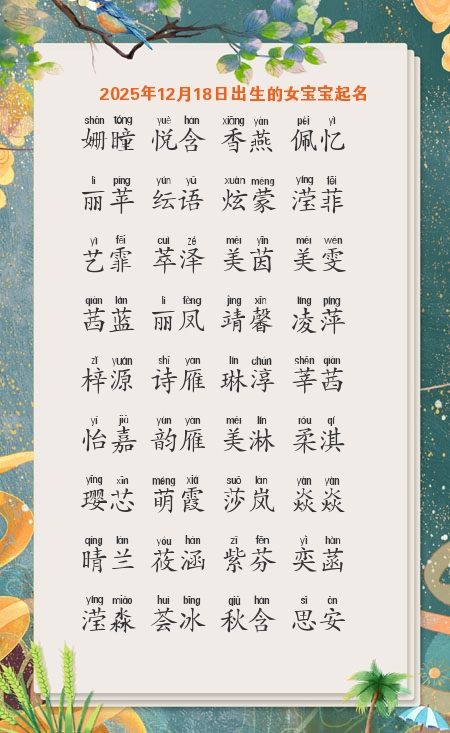 2025年12月18日出生的女宝宝起名
shān tóng yuè hán xiāng yàn pèi yì
姗瞳 悦含 香燕 佩忆
lì píng yún yǔ xuàn méng yíng fēi
丽苹 纭语 炫蒙 滢菲
yì fēi cuì zé měi yīn měi wén
艺霏 萃泽 美茵 美雯
qiàn lán lì fèng jìng xīn líng píng
茜蓝 丽凤 靖馨 凌萍
zǐ yuán shī yàn lín chún shēn qiàn
梓源 诗雁 琳淳 莘茜
yí jiā yùn yàn měi lín róu qí
怡嘉 韵雁 美淋 柔淇
yīng xīn méng xiá suō lán yàn yàn
璎芯 萌霞 莎岚 焱焱
qíng lán yóu hán zǐ fēn yì hàn
晴兰 莜涵 紫芬 奕菡
yíng miǎo huì bīng qiū hán sī ān
滢淼 荟冰 秋含 思安